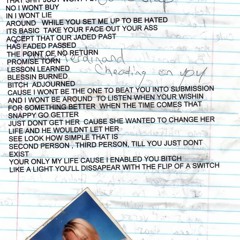 NO I WONT BUY
IN I WONT LIE
AROUND WHILE YOU SET ME UP TO BE HATED
ITS BASIC TAKE YOUR FACE OUT YOUR ASS
ACCEPT THAT OUR JADED PAST
HAS FADED PASSED
THE POINT OF NO RETURN
PROMISE TORN
LESSON LEARNED
cheating on you
BLESSIN BURNED
BITCH ADJOURNED
CAUSE I WONT BE THE ONE TO BEAT YOU INTO SUBMISSION
AND I WONT BE AROUND TO LISTEN WHEN YOUR WISHIN
FOR SOMETHING BETTER WHEN THE TIME COMES THAT
SNAPPY GO GETTER
JUST DONT GET HER CAUSE SHE WANTED TO CHANGE HER
LIFE AND HE WOULDNT LET HER
SEE LOOK HOW SIMPLE THAT IS
SECOND PERSON , THIRD PERSON, TILL YOU JUST DONT
EXIST
YOUR ONLY MY LIFE CAUSE I ENABLED YOU BITCH
LIKE A LIGHT YOU'LL DISSAPEAR WITH THE FLIP OF A SWITCH